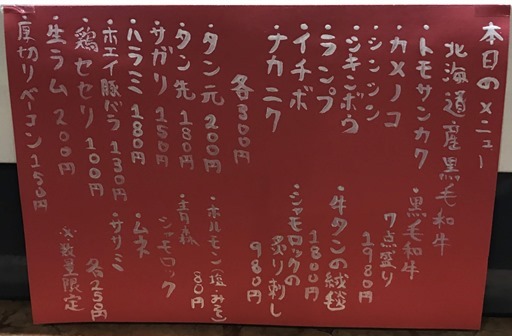 本日のメニュー
北海道産黒毛和牛
・トモサンカク
・カメノコ
・シンシン
・シキンボウ
・ランプ
・イチボ
・ナカニク
各300円
・タン元 200円
・タン先 180円
・サガリ 150円
・ハラミ 180円
・ホエイ豚バラ 130円
・鶏セセリ 100円
・生ラム 200円
・厚切りベーコン 150円
・黒毛和牛
7点盛り
1980円
・牛タンの絨毯
1800円
・シャモロックの
炙り刺し
980円
・ホルモン(塩・みそ)
80円
・青森
シャモロック
・ムネ
・ササミ
各250円
※数量限定